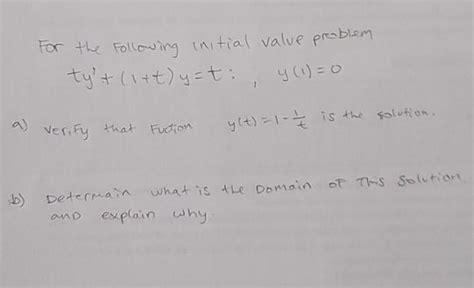 For the Following initial value problem
ty' + (1+t) y = t : , y(1) = 0
a) verify that Fuction y(t) = 1 - 1/t is the solution.
b) Determain what is the Domain of This Solution
and explain why.